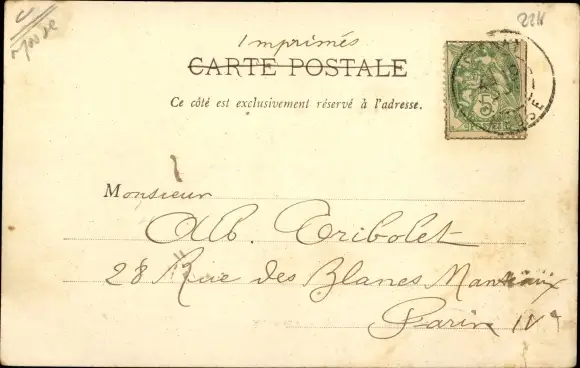 22K
Imprimés
CARTE POSTALE
Ce côté est exclusivement réservé à l'adresse.
Monsieur
Alb. Tribolet
28 Rue des Blancs Manteaux
Paris IVe